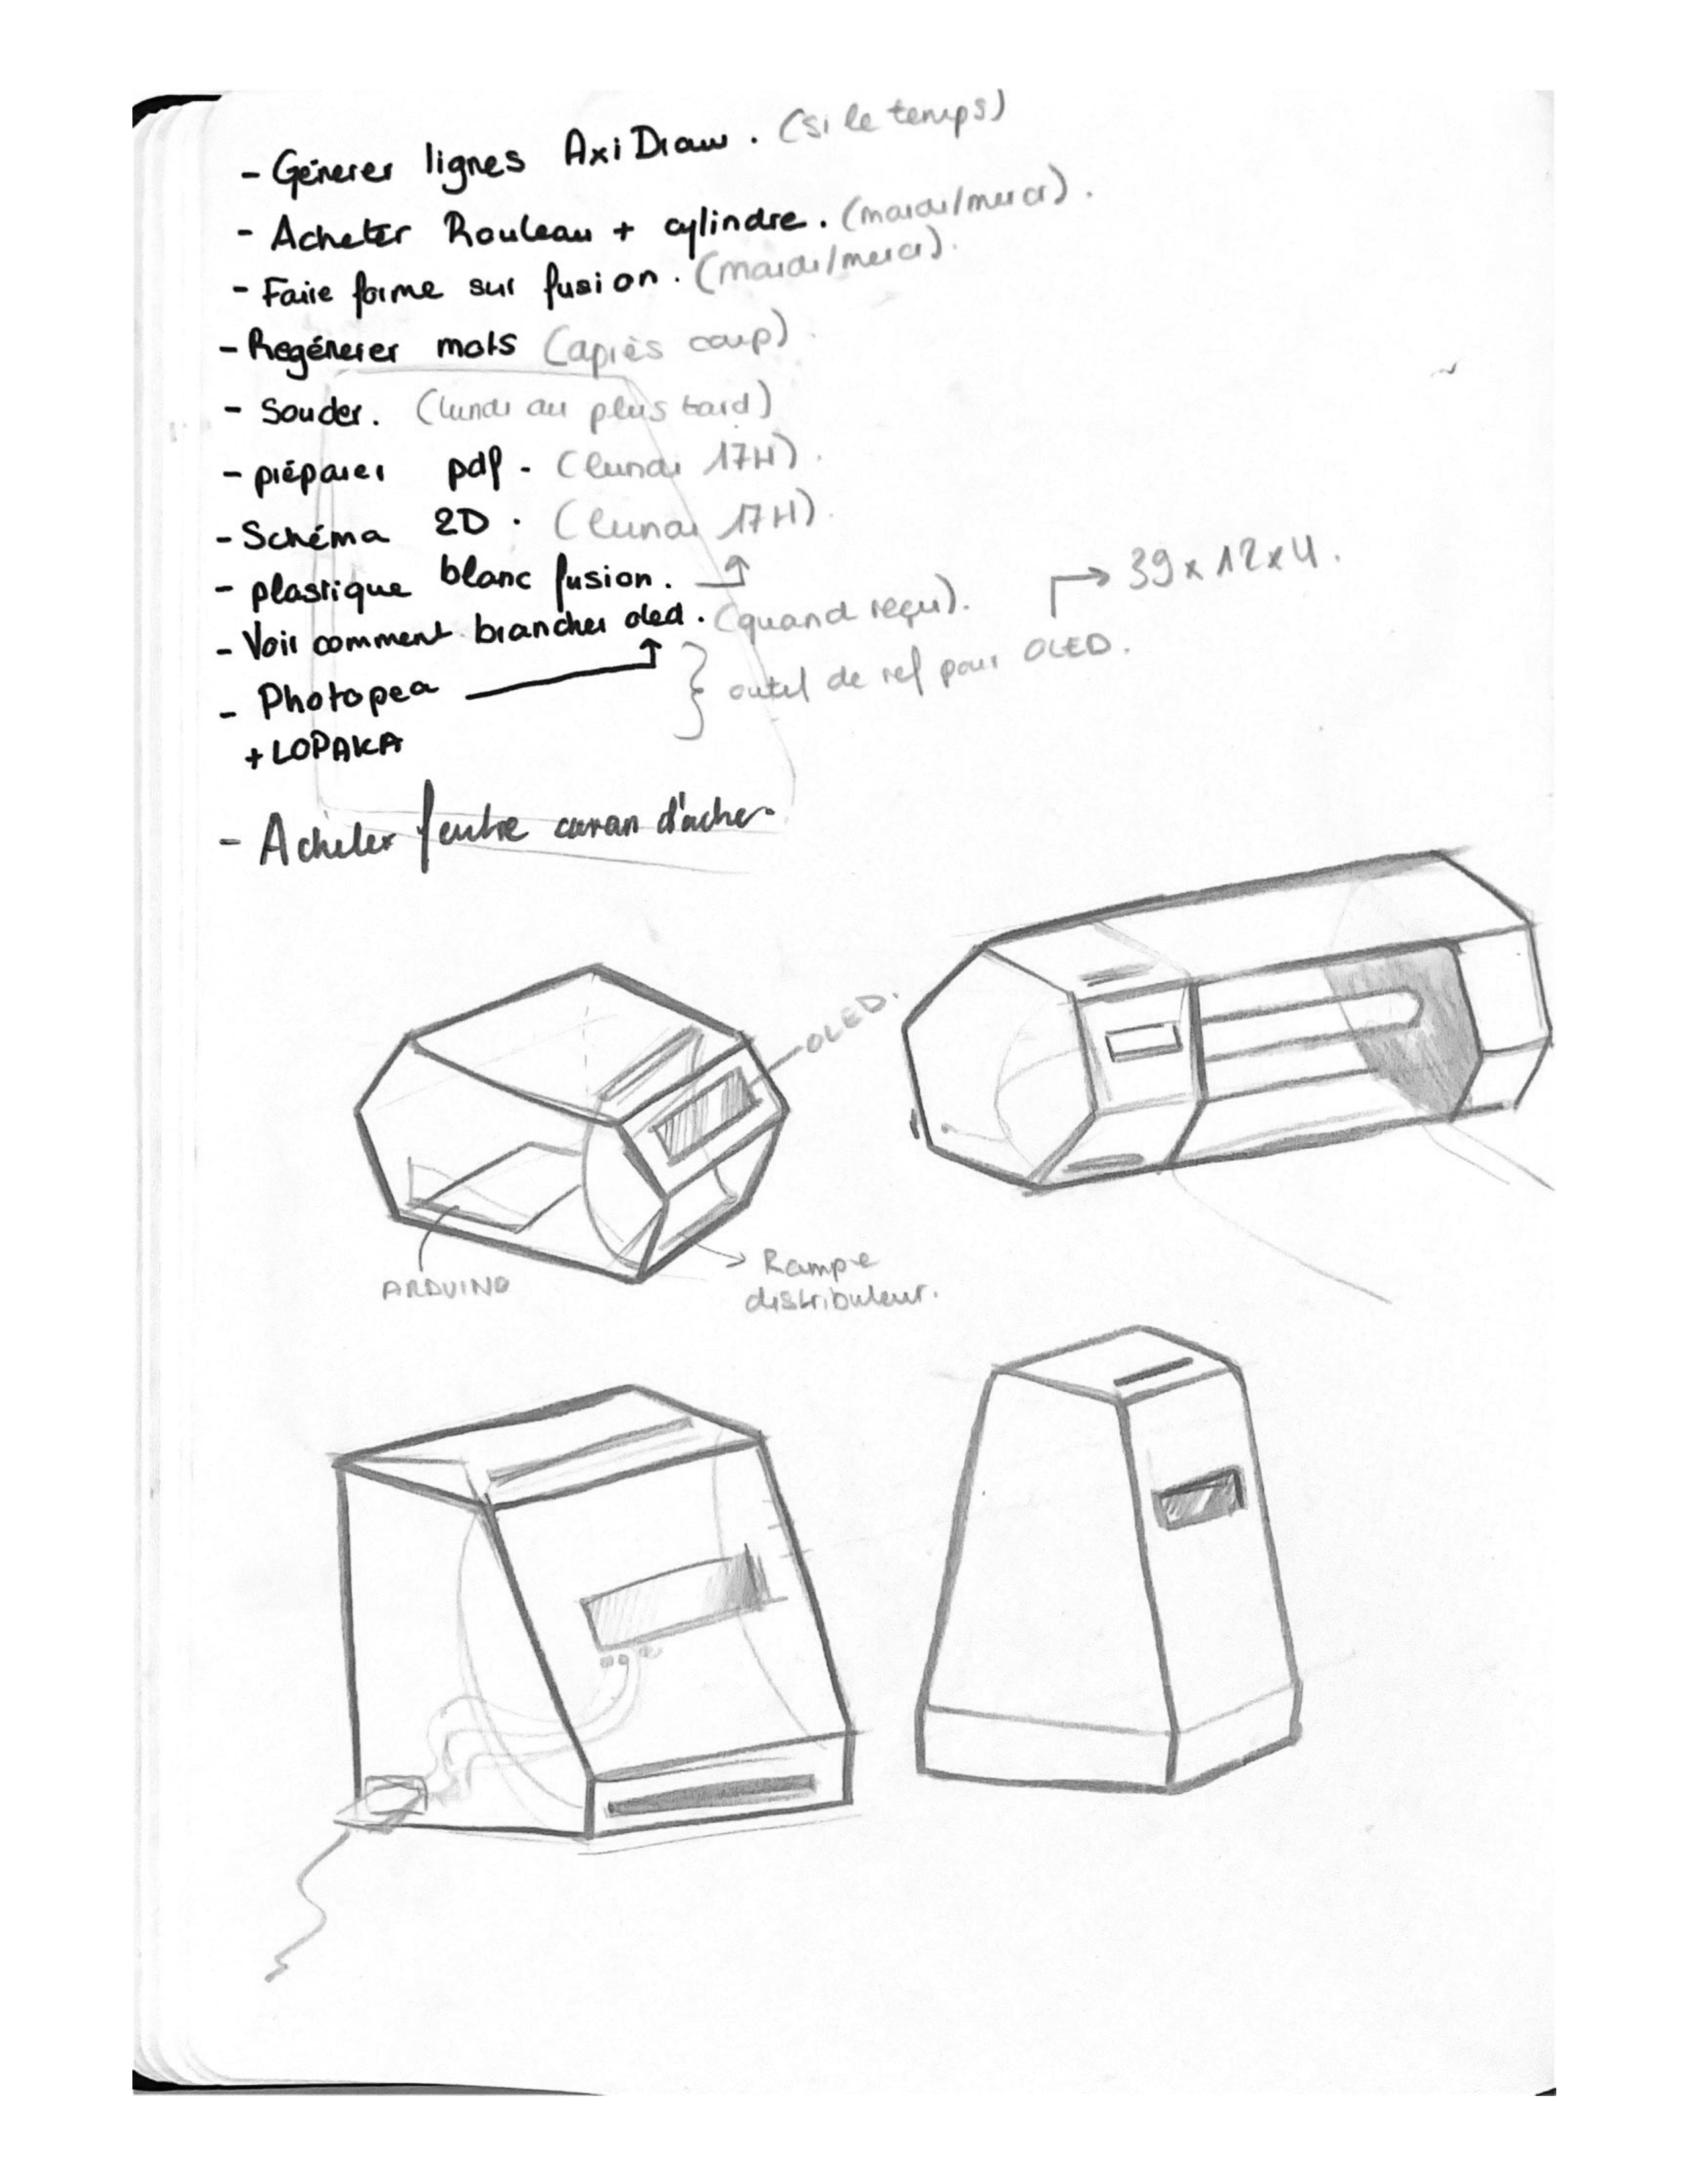 - Générer lignes AxiDraw. (si le temps)
- Acheter Rouleau + cylindre. (mardi/mercr).
- Faire forme sur fusion. (mardi/mercr).
- Regénerer mots (après coup).
- Souder. (lundi au plus tard)
- préparer pdf. (lundi 17H).
- Schéma 2D. (lundi 17H).
- plastique blanc fusion.
- Voir comment brancher oled. (quand reçu).
39 x 12 x 4.
- Photopea
outil de ref pour OLED.
+ LOPAKA
- Acheter feutre caran d'ache
OLED.
ARDUINO
Rampe
distributeur.